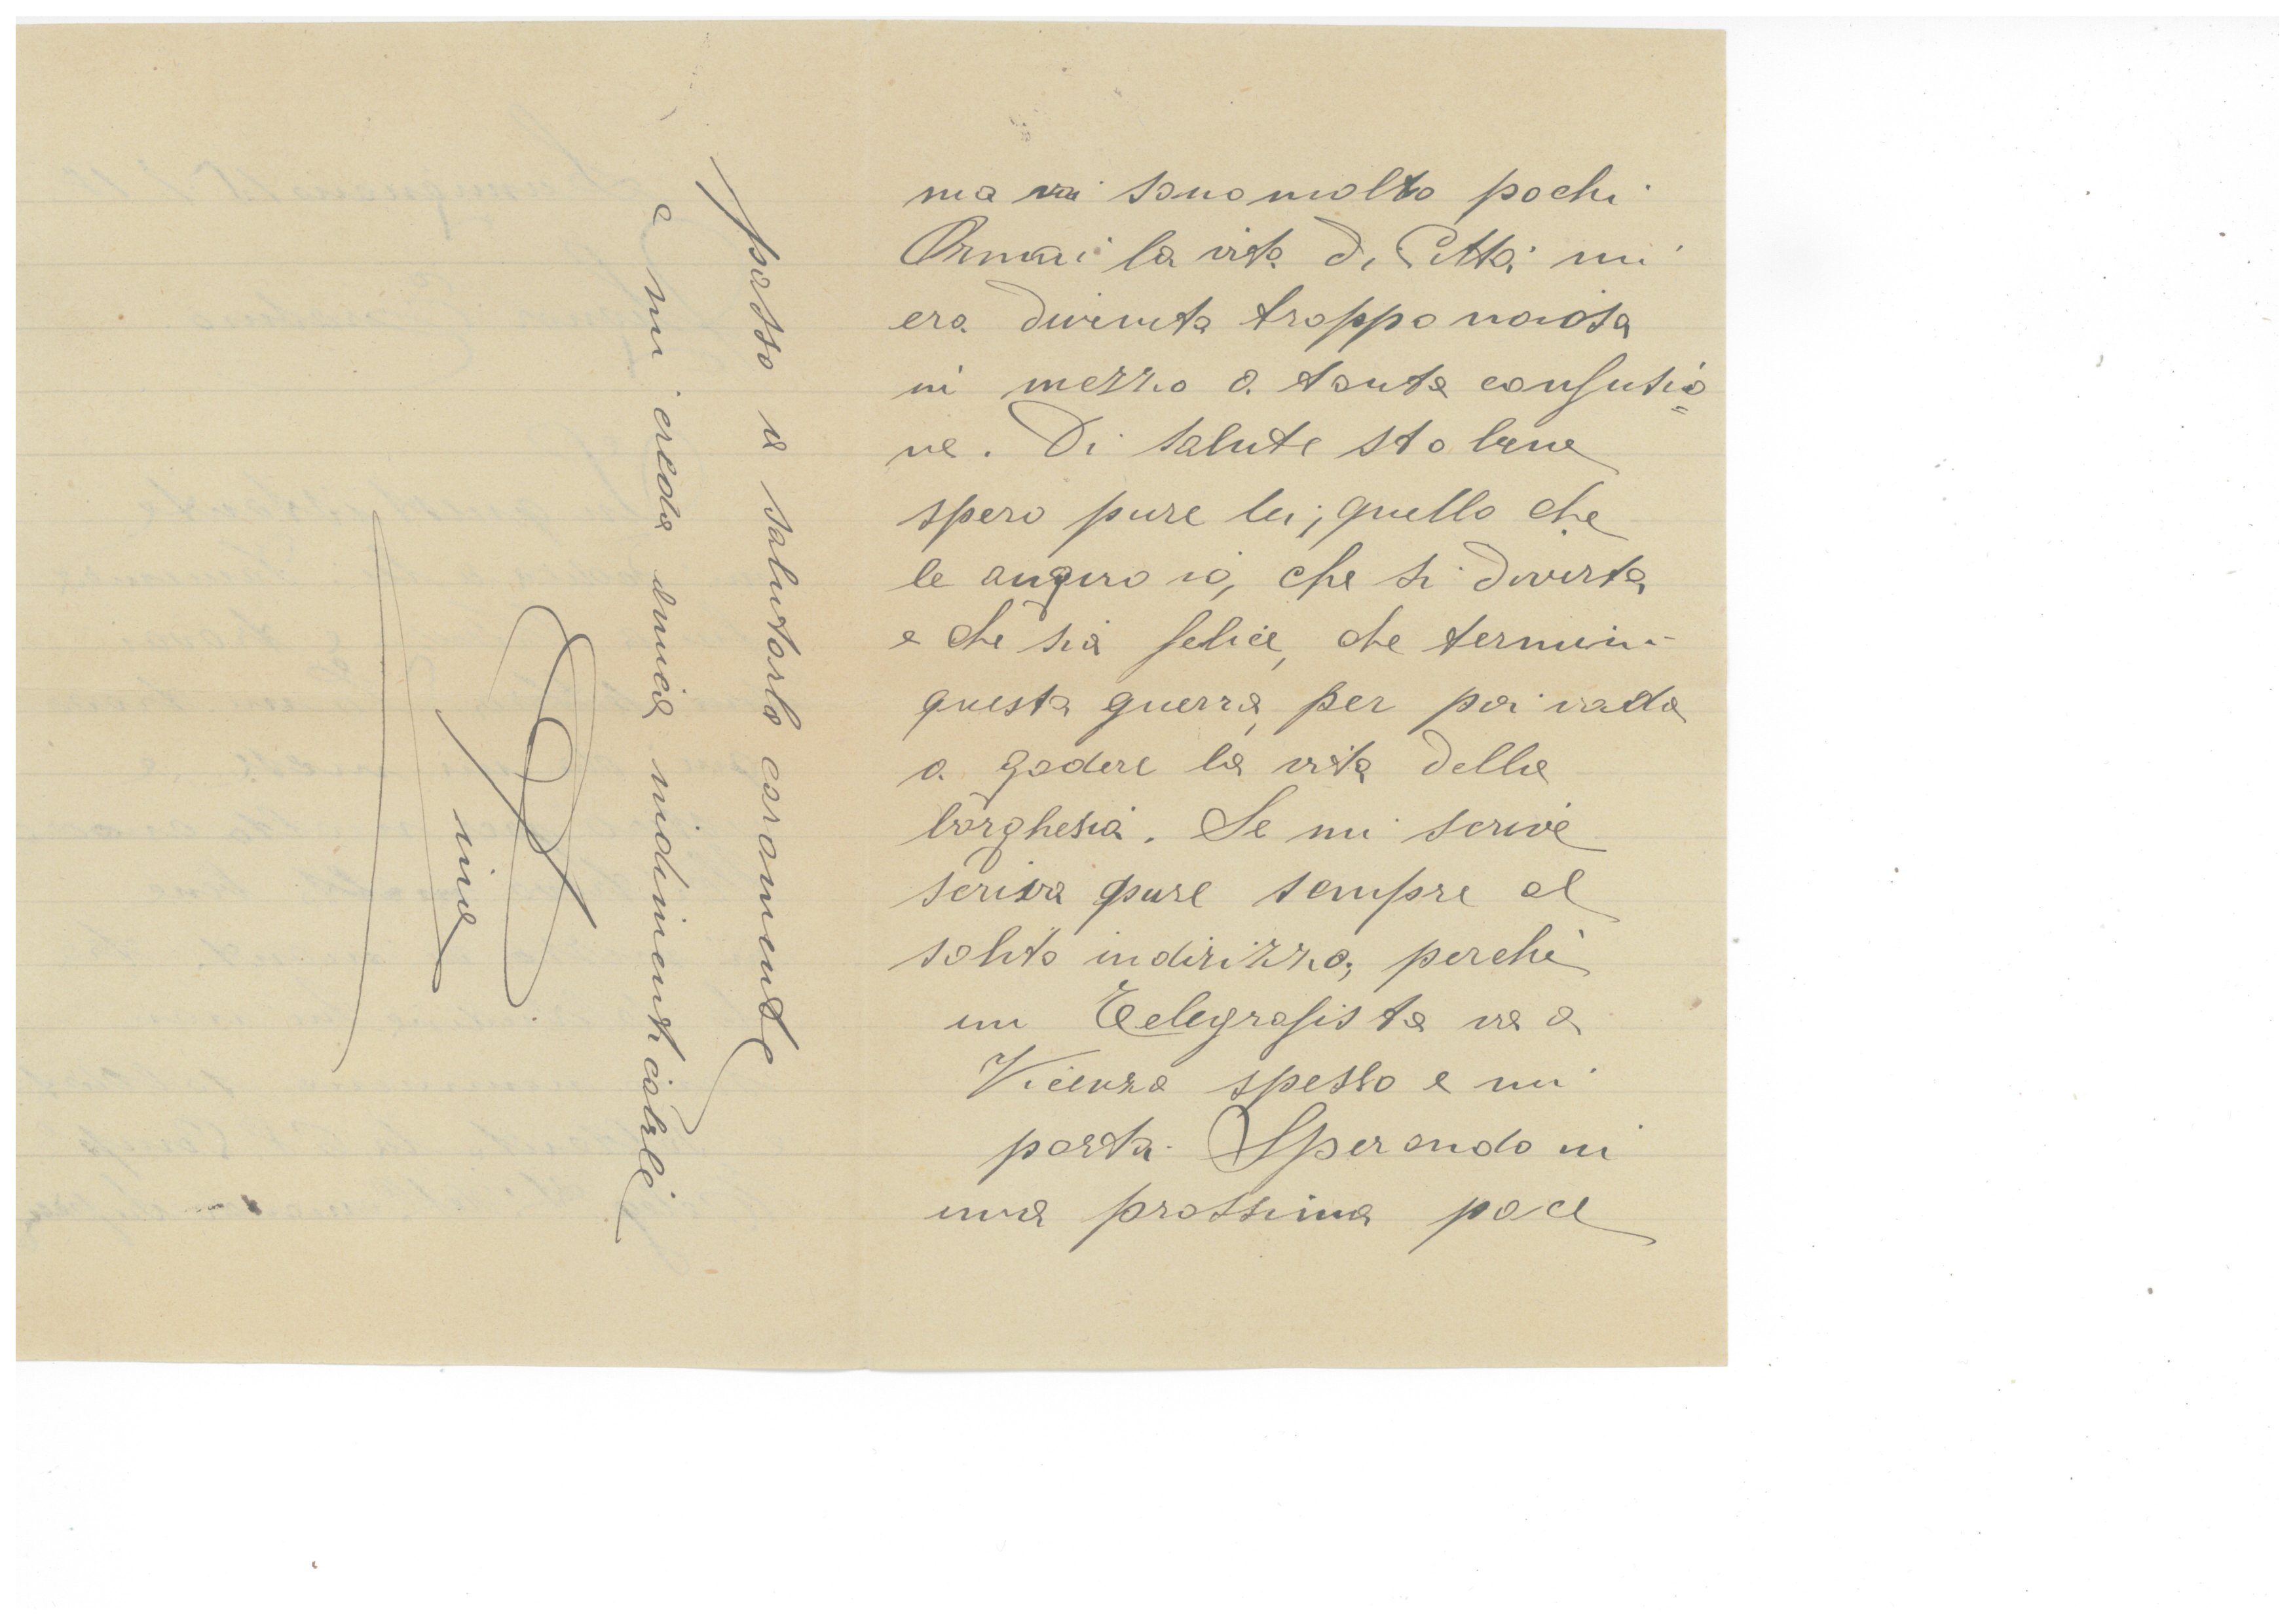 ma vi sono molto pochi
Ormai la vita di Città mi
era divenuta troppo noiosa
in mezzo a tanta confusio=
ne. Di salute sto bene
spero pure lei; quello che
le auguro io, che si diverta
e che sia felice, che termini
questa guerra, per poi vada
a godere la vita della
borghesia. Se mi scrive
scriva pure sempre al
solito indirizzo, perchè
un Telegrafista va a
Vicenza spesso e mi
porta. Sperando in
una prossima pace
passo a salutarlo caramente
e mi creda amica indimenticabile